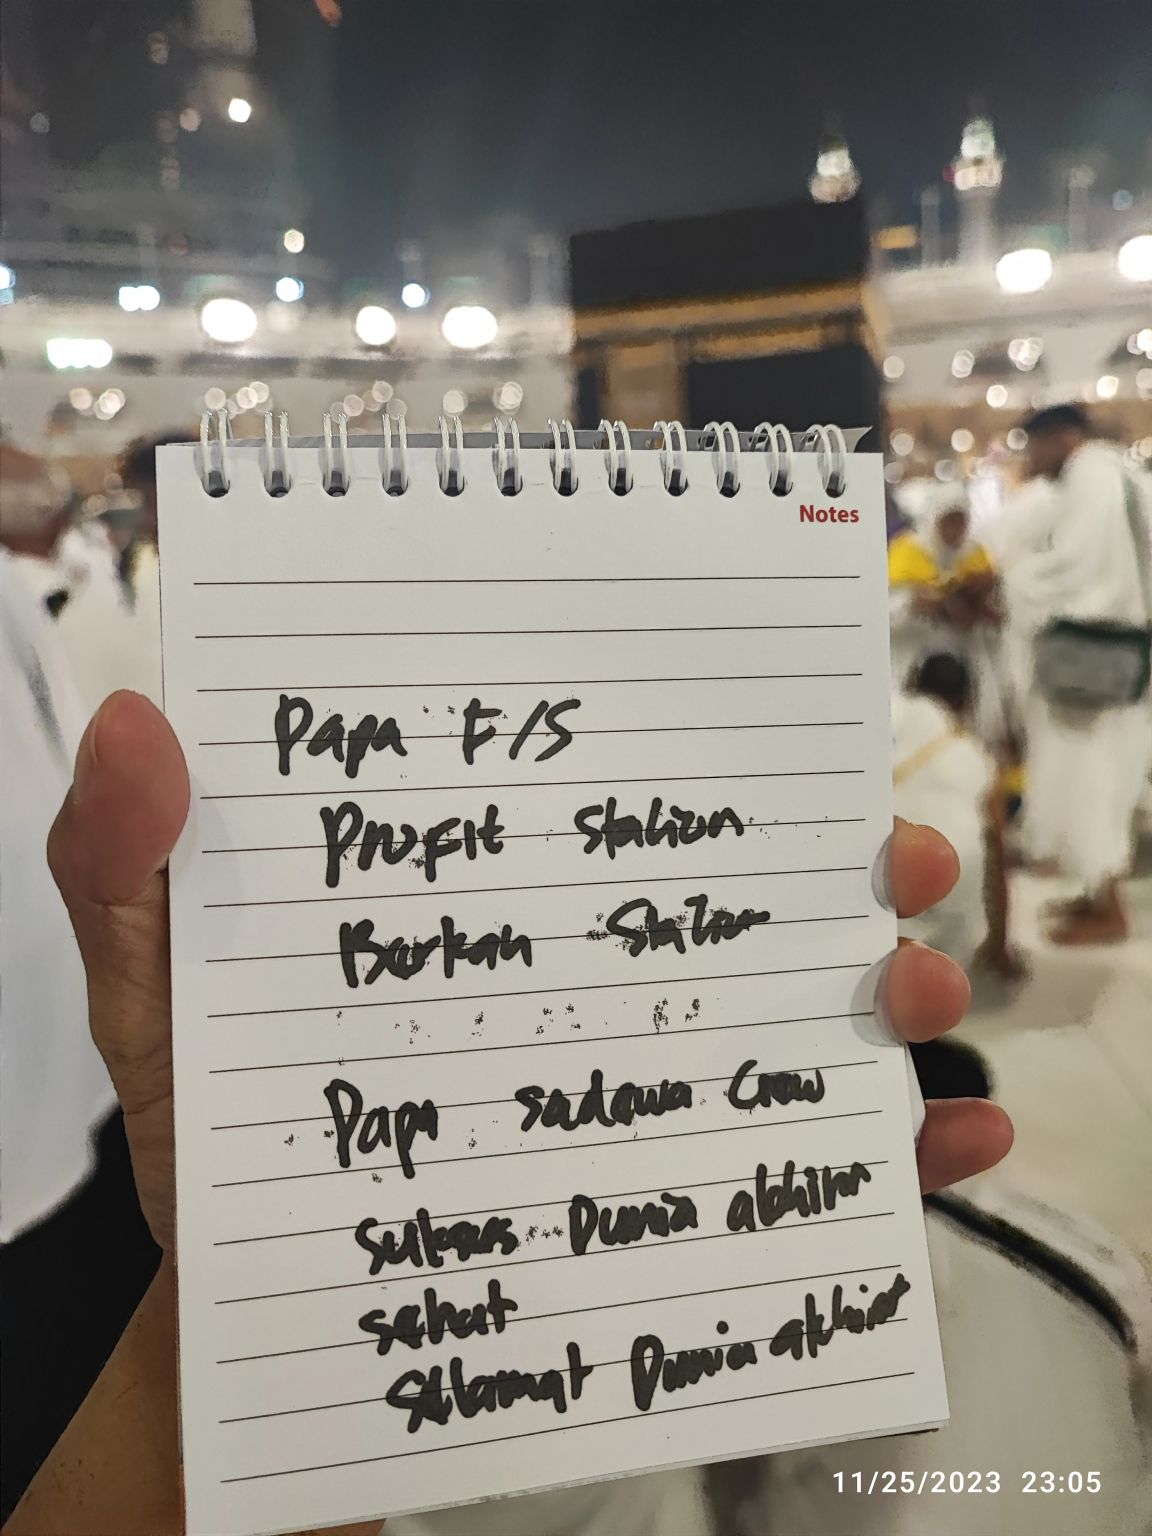 Notes
Papa F/S
Profit Stalion
Berkah Stalion
Papa sadawa Crew
sukses Dunia akhirat
sehat
Selamat Dunia akhirat
11/25/2023 23:05